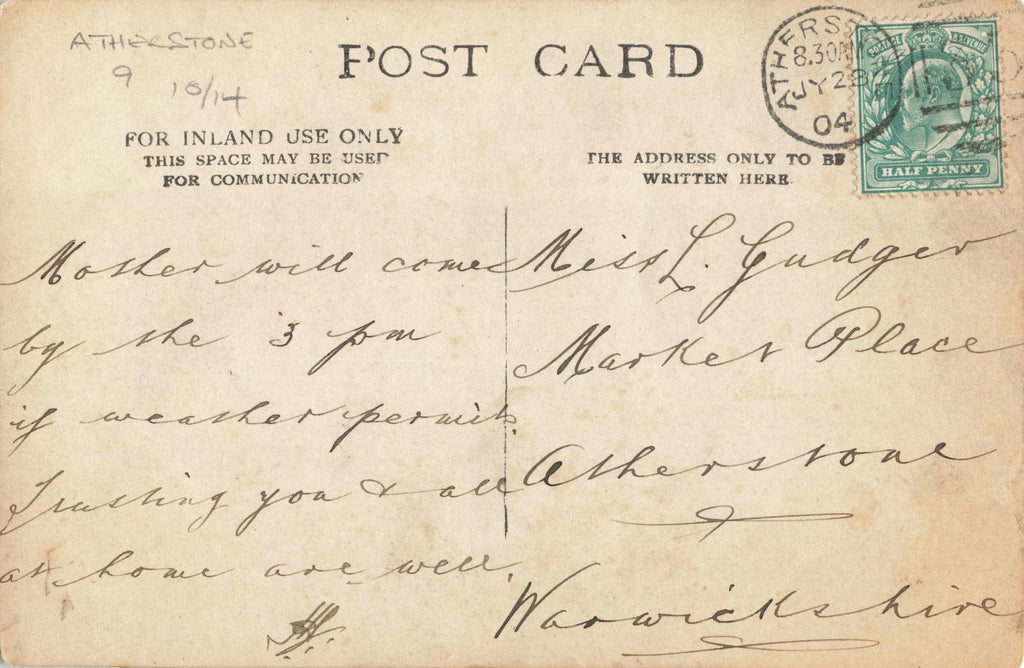 ATHERSTONE
9 10/14
POST CARD
FOR INLAND USE ONLY
THIS SPACE MAY BE USED
FOR COMMUNICATION
THE ADDRESS ONLY TO BE
WRITTEN HERE.
8.30AM
JY 28
04
POSTAGE & REVENUE
HALF PENNY
Mother will come
by the 3 pm
if weather permits.
Trusting you & all
at home are well.
Miss L. Gudger
Market Place
Atherstone
Warwickshire